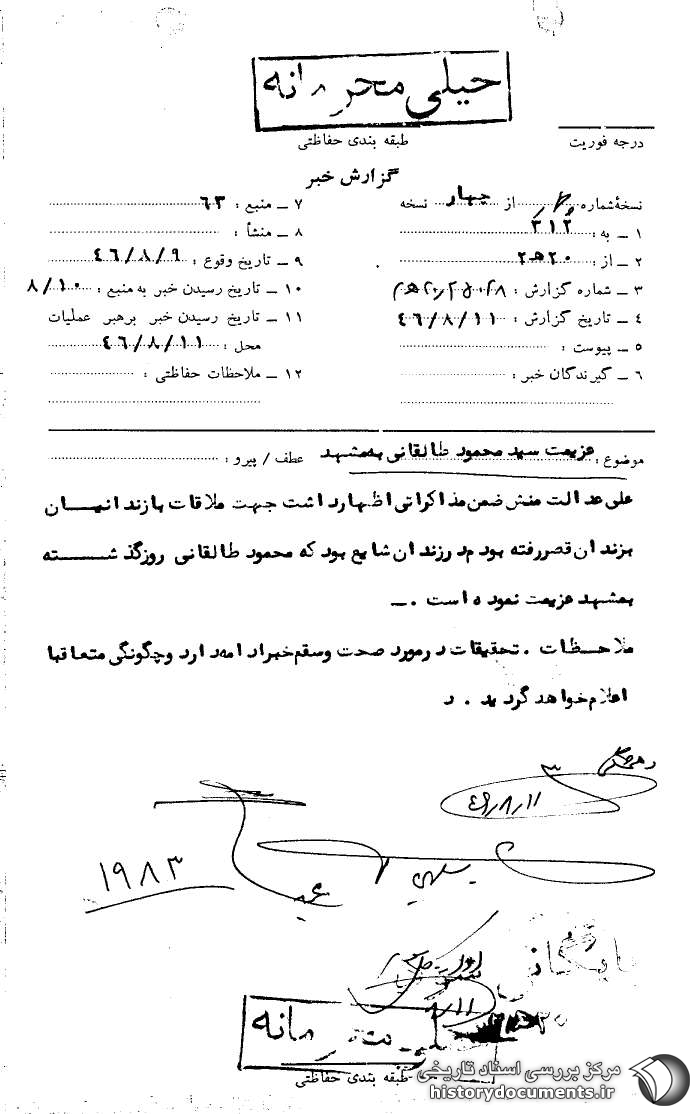 خیلی محرمانه
طبقه بندی حفاظتی
درجه فوریت
گزارش خبر
نسخهٔ شماره از چهار نسخه
۱ ـ به : ۳۱۲
۲ ـ از : ۲۰ ه ۲
۳ ـ شماره گزارش :
۴ ـ تاریخ گزارش : ۴۶/۸/۱۱
۵ ـ پیوست :
۶ ـ گیرندگان خبر :
۷ ـ منبع : ۶۳
۸ ـ منشأ :
۹ ـ تاریخ وقوع : ۴۶/۸/۹
۱۰ ـ تاریخ رسیدن خبر به منبع : ۸/۱۰
۱۱ ـ تاریخ رسیدن خبر برهبر عملیات
محل : ۴۶/۸/۱۱
۱۲ ـ ملاحظات حفاظتی :
موضوع : عزیمت سید محمود طالقانی بمشهد
عطف / پیرو :
علی عدالت منش ضمن مذاکراتی اظهارداشت جهت ملاقات بازندانیان
بزندان قصررفته بودم درزندان شایع بود که محمود طالقانی روزگذشته
بمشهد عزیمت نموده است . ـ
ملاحظات . تحقیقات درمورد صحت وسقم خبرادامه دارد وچگونگی متعاقبا
اعلام خواهد گردید . د
۴۶/۸/۱۱
۱۹۸۳
بایگانی
طبقه بندی حفاظتی
مرکز بررسی اسناد تاریخی
historydocuments.ir